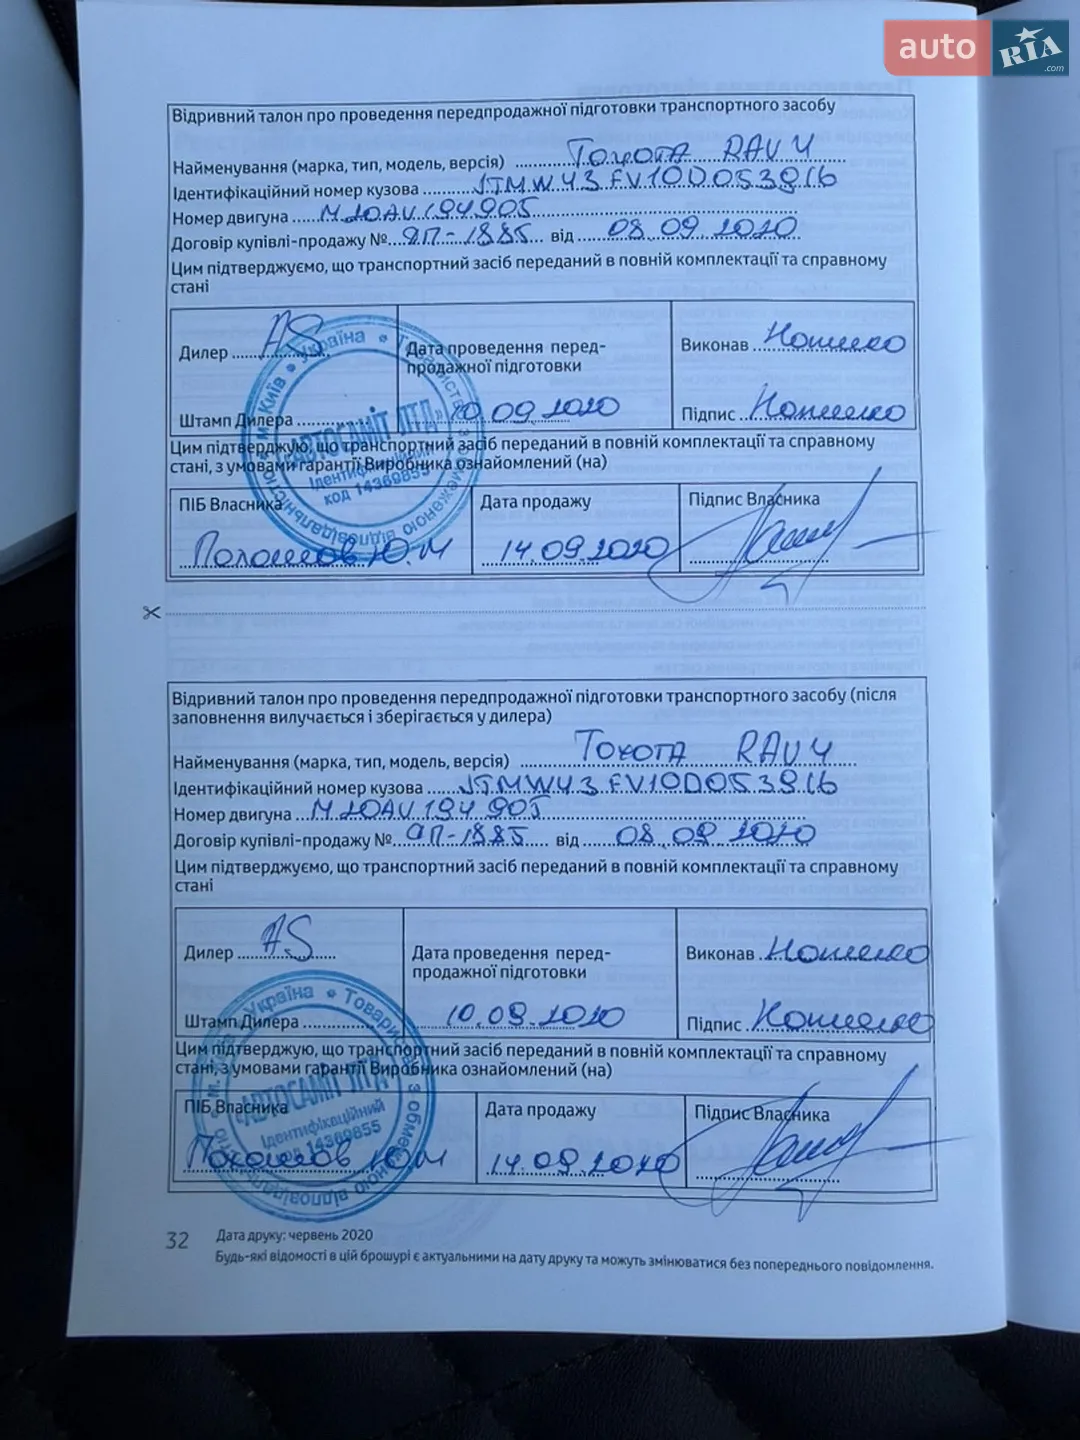 auto RIA .com
Відривний талон про проведення передпродажної підготовки транспортного засобу
Найменування (марка, тип, модель, версія) Тоyота RAV 4
Ідентифікаційний номер кузова JTMW43FV10D053916
Номер двигуна M20AV194905
Договір купівлі-продажу № ЯП-1885 від 08.09.2020
Цим підтверджуємо, що транспортний засіб переданий в повній комплектації та справному
стані
Дилер AS
Дата проведення перед-
продажної підготовки
Виконав
Штамп Дилера
10.09.2020
Підпис
Україна * Товариство з обмеженою відповідальністю * м. Київ *
«АВТОСАМІТ ЛТД»
Ідентифікаційний
код 14369855
Цим підтверджую, що транспортний засіб переданий в повній комплектації та справному
стані, з умовами гарантії Виробника ознайомлений (на)
ПІБ Власника
Дата продажу
Підпис Власника
Ю.М
14.09.2020
Відривний талон про проведення передпродажної підготовки транспортного засобу (після
заповнення вилучається і зберігається у дилера)
Найменування (марка, тип, модель, версія) Тоyота RAV 4
Ідентифікаційний номер кузова JTMW43FV10D053916
Номер двигуна M20AV194905
Договір купівлі-продажу № ЯП-1885 від 08.09.2020
Цим підтверджуємо, що транспортний засіб переданий в повній комплектації та справному
стані
Дилер AS
Дата проведення перед-
продажної підготовки
Виконав
Штамп Дилера
10.09.2020
Підпис
Україна * Товариство з обмеженою відповідальністю * м. Київ *
«АВТОСАМІТ ЛТД»
Ідентифікаційний
код 14369855
Цим підтверджую, що транспортний засіб переданий в повній комплектації та справному
стані, з умовами гарантії Виробника ознайомлений (на)
ПІБ Власника
Дата продажу
Підпис Власника
Ю.М
14.09.2020
32
Дата друку: червень 2020
Будь-які відомості в цій брошурі є актуальними на дату друку та можуть змінюватися без попереднього повідомлення.